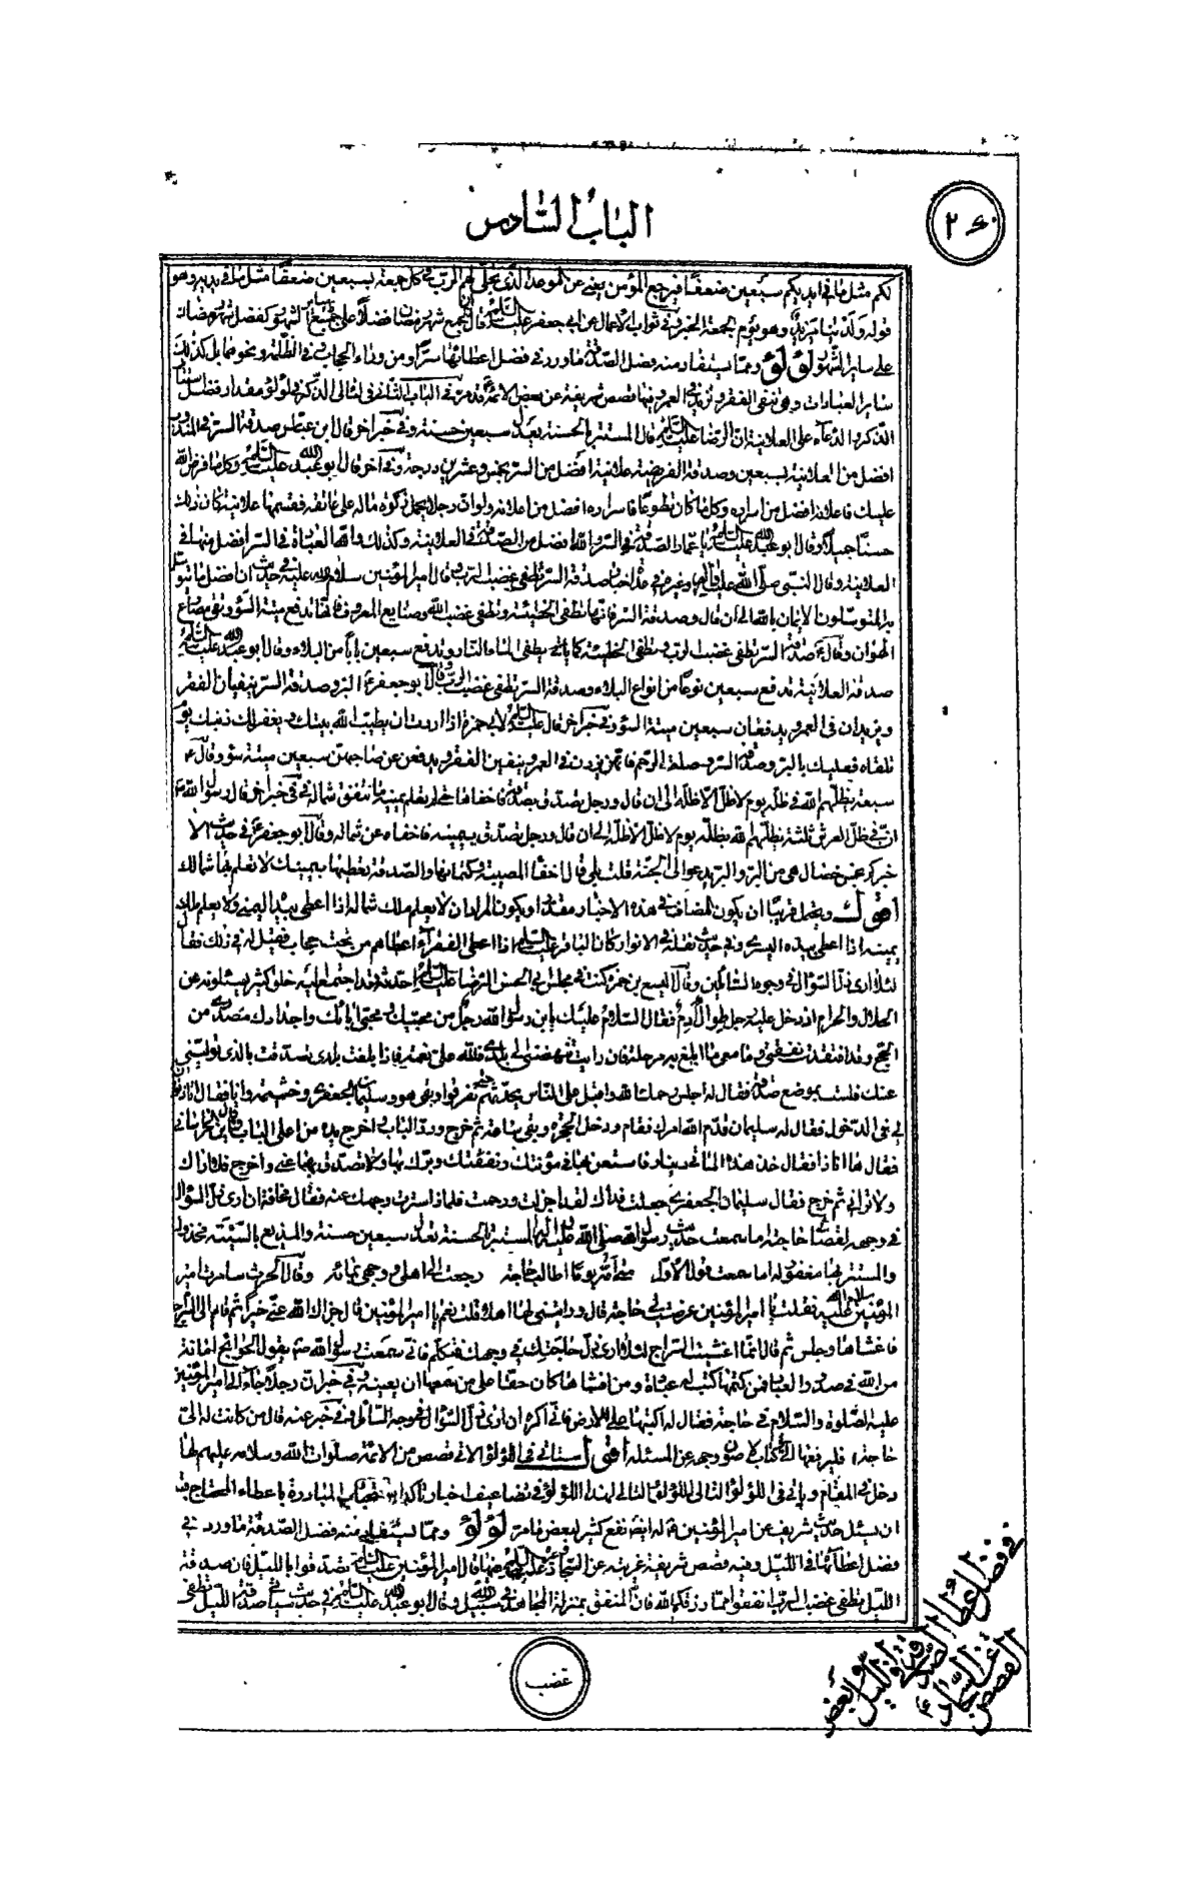 ٢٤٠
الباب السادس
لكم مثل ما في ايديكم سبعين ضعفا فيرجع المؤمن يعني عن الموعد الذي يتجلى لهم الرب في كل جمعة بسبعين ضعفا مثل ما في يديه وهو
قوله ولدينا مزيد وهو يوم الجمعة الخبر وفي ثواب الاعمال عن ابي جعفر عليه السلام قال ان لجمع شهر رمضان فضلا على جمع ساير الشهور كفضل شهر رمضان
على ساير الشهور لؤلؤ ومما يستفاد منه فضل الصدقة ما ورد في فضل اعطائها سرا ومن وراء الحجاب وفي الظلمة ونحوها بل كذلك
ساير العبادات وهي تنفي الفقر وتزيد في العمر وفيها قصص شريفة عن بعض الائمة قد مر في الباب الثاني في لئالي الذكر في لؤلؤ مقدار فضل
الذكر والدعاء على العلانية ان الرضا عليه السلام قال المستتر بالحسنة يعدل سبعين حسنة وفي خبر اخر قال ابن عباس صدقة السر في المندوب
افضل من العلانية بسبعين وصدقة الفريضة علانية افضل من السر بخمس وعشرين درجة وفي اخر قال ابو عبد الله عليه السلام وكلما فرض الله
عليك فاعلانه افضل من اسراره وكل ما كان تطوعا فاسراره افضل من اعلانه ولو ان رجلا يحمل زكوة ماله على عاتقه فقسمها علانية كان ذلك
حسنا جميلا وقال ابو عبد الله عليه السلام يا عمار الصدقة في السر والله افضل من الصدقة في العلانية وكذلك والله العبادة في السر افضل منها في
العلانية وقال النبي صلى الله عليه واله وغيره في عدة اخبار صدقة السر تطفي غضب الرب وقال امير المؤمنين سلام الله عليه في حديث ان افضل ما توسل
به المتوسلون الايمان بالله الى ان قال وصدقة السر فانها تطفي الخطيئة وتطفي غضب الله وصنايع المعروف فانها تدفع ميتة السوء وتقي مصارع
الهوان وقال صدقة السر تطفي غضب الرب وتطفي الخطيئة كما يطفي الماء النار وتدفع سبعين بابا من البلاء وقال ابو عبد الله عليه السلام
صدقة العلانية تدفع سبعين نوعا من انواع البلاء وصدقة السر تطفي غضب الرب وقال ابو جعفر ع البر وصدقة السر ينفيان الفقر
ويزيدان في العمر ويدفعان سبعين ميتة السوء وفي خبر اخر قال عليه السلام لابي حمزة اذا اردت ان يطيب الله ميتتك ويغفر لك ذنبك يوم
تلقاه فعليك بالبر وصدقة السر وصلة الرحم فانهن يزدن في العمر وينفين الفقر ويدفعن عن صاحبهن سبعين ميتة سوء وقال ع
سبعة يظلهم الله في ظله يوم لا ظل الا ظله الى ان قال ورجل تصدق بصدقة فاخفاها حتى لم تعلم يمينه ما تنفق شماله وفي خبر اخر قال رسول الله ص
ان في ظل العرش ثلثة يظلهم الله بظله يوم لا ظل الا ظله الى ان قال ورجل تصدق بيمينه فاخفاه عن شماله وقال ابو جعفر ع في حديث الا
خبركم بخمس خصال هي من البر والبر يدعوا الى الجنة قلت بلى قال اخفاء المصيبة وكتمانها والصدقة تعطيها بيمينك لا تعلم بها شمالك
اقول ويحتمل قريبا ان يكون المضاف في هذه الاخبار مقدرا ويكون المراد ان لا يعلم ملك شماله اذا اعطى بيده اليمنى ولا يعلم ملك
يمينه اذا اعطى بيده اليسرى وفي حديث نقله في الانوار كان الباقر عليه السلام اذا اعطى الفقراء اعطاهم من تحت حجاب فقيل له في ذلك فقال
لئلا ارى ذل السؤال في وجوه السائلين وقال اليسع بن حمزة كنت في مجلس ابي الحسن الرضا عليه السلام احدثه وقد اجتمع اليه خلق كثير يسئلونه عن
الحلال والحرام اذ دخل عليه رجل طوال ادم فقال السلام عليك يابن رسول الله رجل من محبيك ومحبي ابائك واجدادك مصدري من
الحج وقد افتقدت نفقتي وما معي ما ابلغ به مرحلة فان رايت ان تنهضني الى بلدي فلله علي نعمة فاذا بلغت بلدي تصدقت بالذي توليني
عنك فلست بموضع صدقة فقال له اجلس رحمك الله واقبل على الناس يحدثهم حتى تفرقوا وبقي هو وسليمان الجعفري وخيثمة وانا فقال اتاذنون
لي في الدخول فقال له سليمان قدم الله امرك فقام ودخل الحجرة وبقي ساعة ثم خرج ورد الباب واخرج يده من اعلى الباب وقال اين الخراساني
فقال ها انا ذا فقال خذ هذه المائتي دينار فاستعن بها في مؤنتك ونفقتك وتبرك بها ولا تصدق بها عني واخرج فلا اراك
ولا تراني ثم خرج فقال سليمان الجعفري جعلت فداك لقد اجزلت ورحمت فلماذا سترت وجهك عنه فقال مخافة ان ارى ذل السؤال
في وجهه لقضائي حاجته اما سمعت حديث رسول الله صلى الله عليه واله المستتر بالحسنة تعدل سبعين حسنة والمذيع بالسيئة مخذول
والمستتر بها مغفور له اما سمعت قول الاول متى آته يوما اطالب حاجة رجعت الى اهلي ووجهي بمائه وقال الحرث سامرت امير
المؤمنين سلام الله عليه فقلت يا امير المؤمنين عرضت لي حاجة قال ورايتني لها اهلا قلت نعم يا امير المؤمنين قال جزاك الله عني خيرا ثم قام الى السراج
فاغشاها وجلس ثم قال انما اغشيت السراج لئلا ارى ذل حاجتك في وجهك فتكلم فاني سمعت رسول الله ص يقول الحوائج امانة
من الله في صدور العباد فمن كتمها كتب له عبادة ومن افشاها كان حقا على من سمعها ان يعينه وفي خبر ان رجلا جاء الى امير المؤمنين
عليه الصلوة والسلام في حاجة فقال له اكتبها على الارض فاني اكره ان ارى ذل السؤال في وجه السائل وفي خبر عنه قال من كانت له الي
حاجة فليرفعها الي في كتاب لاصون وجهه عن المسئلة اقول ستاتي في اللؤلؤ الاتي قصص من الائمة صلوات الله وسلامه عليهم لها
دخل في المقام وياتي في اللؤلؤ التالي للؤلؤ التالي لهذا اللؤلؤ في تضاعيف اخبار تاكد استحباب المبادرة باعطاء المحتاج قبل
ان يسئل حديث شريف عن امير المؤمنين ع له ايضا نفع كثير لبعض ما مر لؤلؤ ومما يستفاد منه فضل الصدقة ما ورد في
فضل اعطائها في الليل وفيه قصص شريفة غريبة عن السجاد عليه السلام منها قال امير المؤمنين عليه السلام تصدقوا بالليل فان صدقة
الليل تطفي غضب الرب انفقوا مما رزقكم الله فان المنفق بمنزلة المجاهد في سبيل الله وقال ابو عبد الله عليه السلام في حديث صدقة الليل تطفي
غضب
في فضل اعطاء الصدقة في الليل وبعض القصص عن السجاد ع